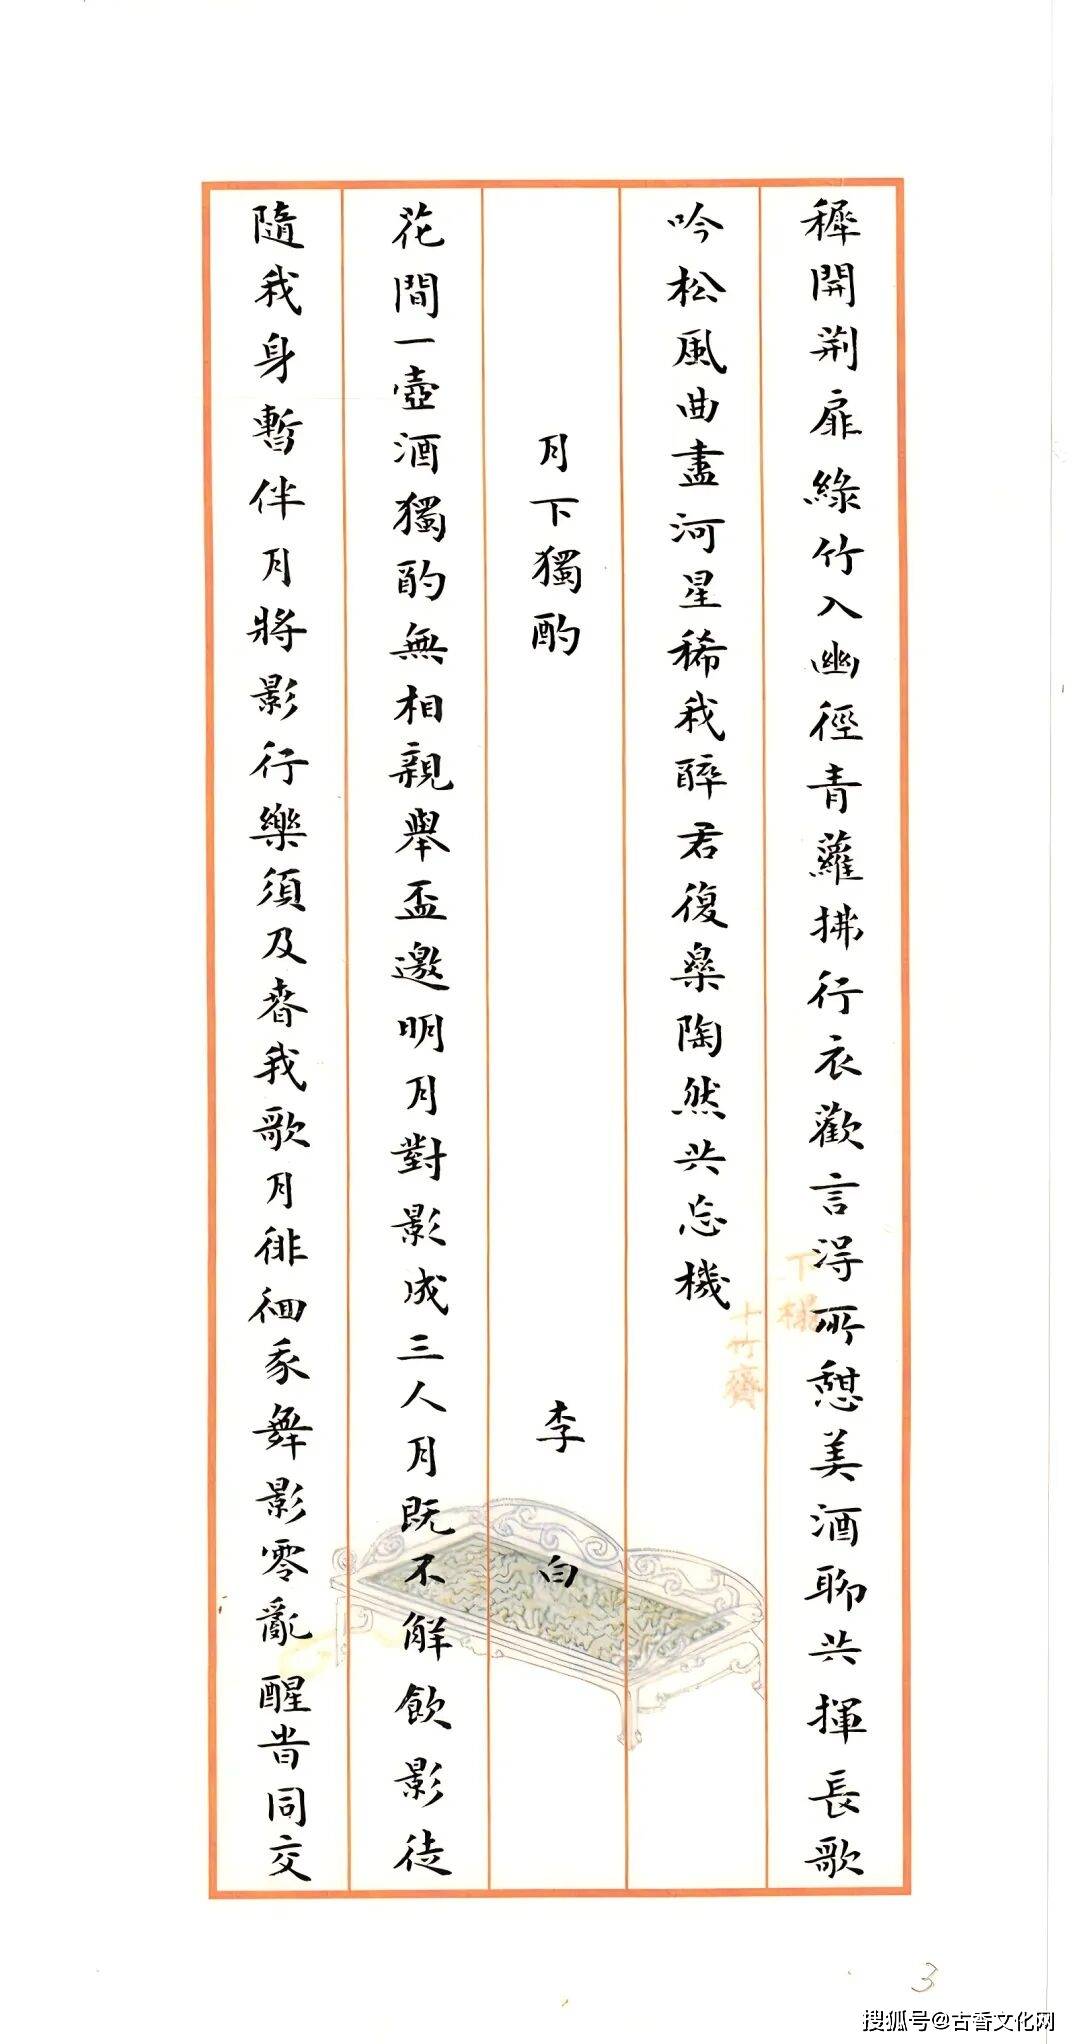 穉開荆扉綠竹入幽徑青蘿拂行衣歡言淂所憩美酒聊共揮長歌
吟松風曲盡河星稀我醉君復樂陶然共忘機
月下獨酌 李白
花間一壺酒獨酌無相親舉盃邀明月對影成三人月既不解飲影徒
隨我身暫伴月將影行樂須及春我歌月徘徊我舞影零亂醒時同交
下榻
十竹齋
3
搜狐号@古香文化网